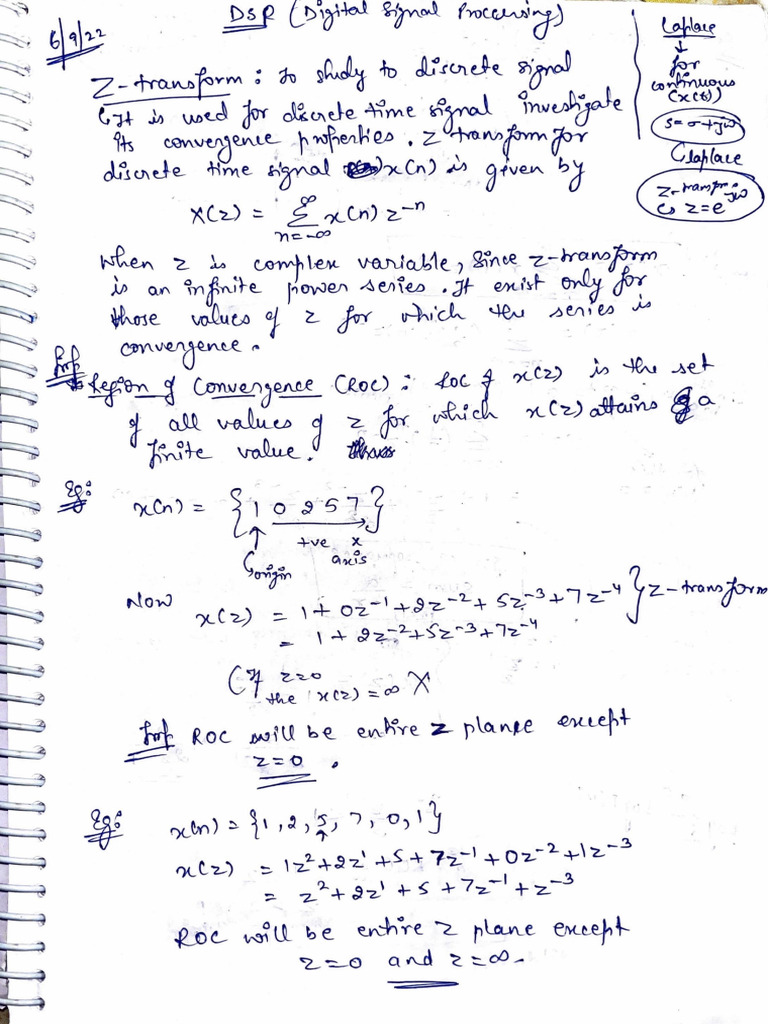 DSP (Digital Signal Proccessing)
6/9/22
Laplace
↓
for
continuous
(x(t))
s = σ + jω
Laplace
Z-transfr
z = e^jω
Z-transform : to study to discrete signal
It is used for discrete time signal investigate
its convergence properties. Z transform for
discrete time signal x(n) is given by
X(z) = ∑_{n=-∞}^{∞} x(n) z^-n
When z is complex variable, since z-transform
is an infinite power series. It exist only for
those values of z for which the series is
convergence.
Imp
Region of Convergence (ROC) : ROC of x(z) is the set
of all values of z for which x(z) attains a
finite value.
Eg:
x(n) = {1 0 2 5 7}
↑
+ve x
axis
origin
Now
x(z) = 1 + 0z^-1 + 2z^-2 + 5z^-3 + 7z^-4 } Z-transform
= 1 + 2z^-2 + 5z^-3 + 7z^-4
(If z=0
the x(z) = ∞ X
Imp ROC will be entire z plane except
z=0 .
Eg:
x(n) = {1, 2, 5, 7, 0, 1}
↑
x(z) = 1z^2 + 2z^1 + 5 + 7z^-1 + 0z^-2 + 1z^-3
= z^2 + 2z^1 + 5 + 7z^-1 + z^-3
ROC will be entire z plane except
z=0 and z=∞.